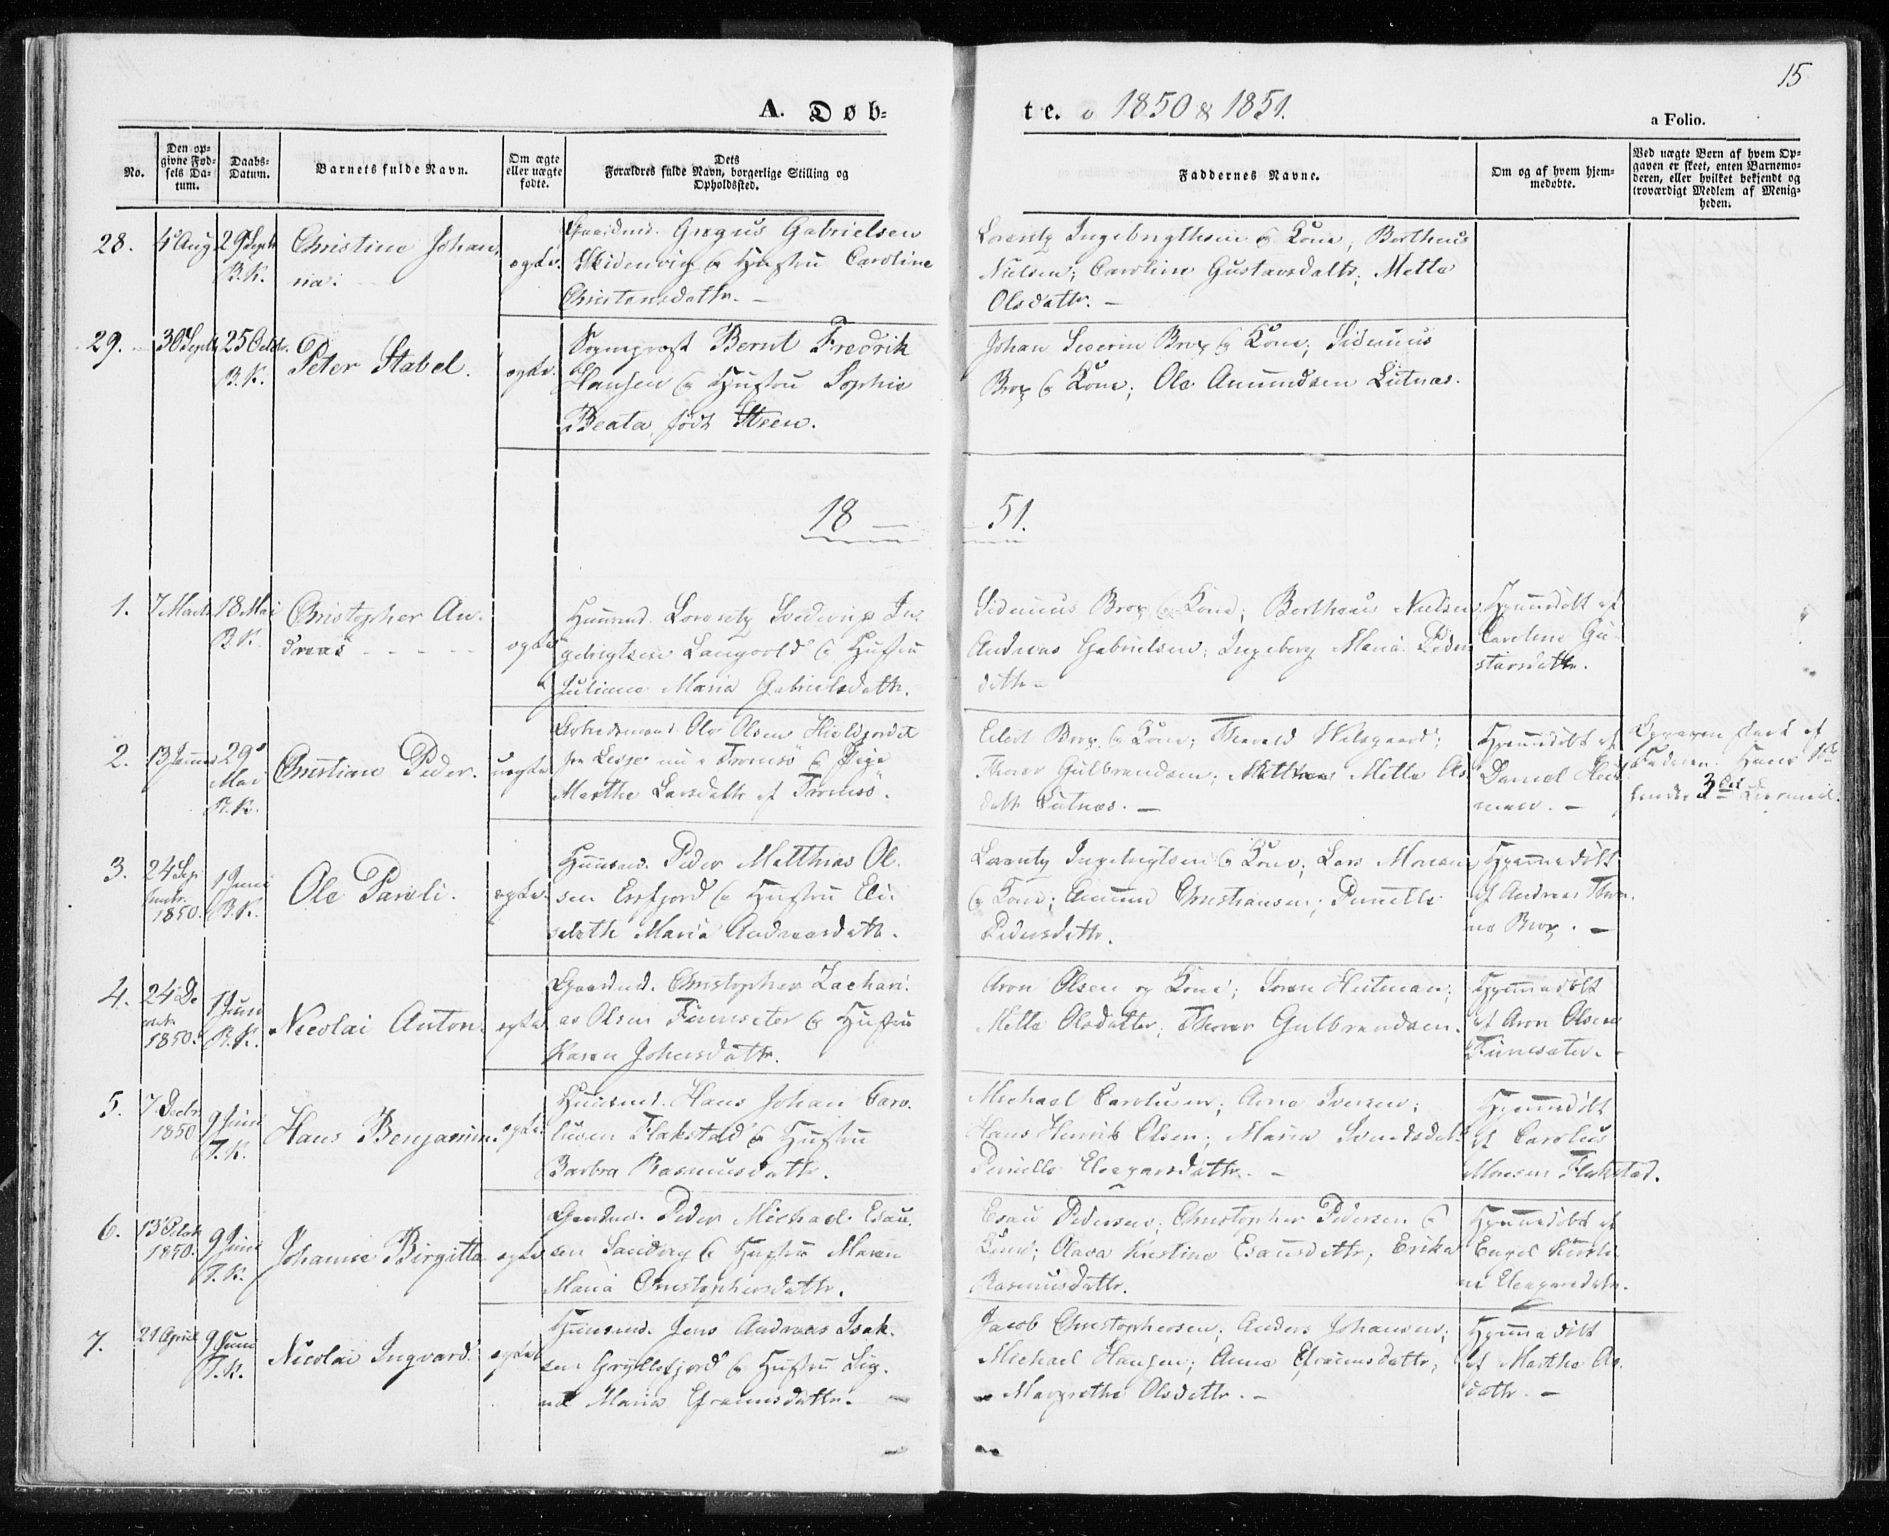 15
A. Døb-
te. 1850 & 1851.
a Folio.
No.
Den op-
givne Fød-
sels Da-
tum.
Daabs-
Datum.
Barnets fulde Navn.
Om ægte
eller uægte
fødte.
Dets
Forældres fulde Navn, borgerlige Stilling og
Opholdssted.
Faddernes Navne.
Om og af hvem hjem-
medøbte.
Ved uægte Børn af hvem Op-
gaven er skeet, enten Barnemo-
deren, eller hvilket bekjendt og
troværdigt Medlem af Menig-
heden.
28.
4 Aug
29 Septb
B. K.
Christine Johan-
na.
ægte.
Gaardmd. Gregus Gabrielsen
& Hustru Caroline
Christensdattr. -
Lorentz Ingebrigtsen & Kone, Bertheus
Nielsen; Caroline Gustavsdattr; Mette
Olsdattr. -
29.
30 Septb
25 Octbr.
B. K.
Peter Stabel.
ægte.
Sognepræst Bernt Fredrik
Hansen & Hustru Sophie
Beata, født Steen.
Johan Severin Brox & Kone; Sidenius
Brox & Kone; Ole Amundsen Lutnæs.
18 — — 51.
1.
7 Marts
18 Mai
B. K.
Christopher An-
dreas - - - -
ægte
Huusmd. Lorentz In-
gebrigtsen & Hustru
Juliane Maria Gabrielsdattr.
Sidenius Brox & Kone; Bertheus Nielsen
Andreas Gabrielsen; Ingeborg Maria Peders
dattr -
Hjemmedøbt af
Caroline Gu-
stavsdattr.
2.
13 Januar
29
Mai
B. K.
Christian Peder.
uægte
Ole Olsen
fra nu i Tromsö & Pige
Marthe Larsdattr af Tromsö.
Edert Brox & Kone; Thorvald
Thorer Gulbrandsen; Mette Ols
dattr Lutnæs. -
Hjemmedøbt af
Daniel Heit-
mann. -
Opgaven skeet af
Faderen. Hans
3die
3.
24 Sep
tembr.
1850.
1 Juni
B. K.
Ole Pareli.
ægte.
Huusmd. Peder Matthias Ol-
sen Ersfjord & Hustru Eli-
sebeth Maria Andreasdattr.
Lorentz Ingebrigtsen & Kone; Lars Monsen
& Kone; Amund Christiansen; Pernelle
Pedersdattr.
Hjemmedøbt
af Andreas
Brox. -
4.
24 De
cbr.
1850.
1 Juni
B. K.
Nicolai Anton.
ægte.
Gaardmd. Christopher Zachari-
as Olsen Finnsæter & Hustru
Karen Johnsdattr.
Aron Olsen og Kone; Søren Heitman;
Mette Olsdatter, Thorer Gulbrandsen.
Hjemmedøbt
af Aron Olsen
Finnesæter.
5.
7 Decbr.
1850
9 Juni
T. K.
Hans Benjamin.
ægte.
Huusmd. Hans Johan Caro-
lusen Flakstad & Hustru
Barbra Rasmusdattr.
Michael Carolusen; Arne Iversen;
Hans Henrik Olsen; Maria Svendsdattr
Pernelle Eleazarsdattr. -
Hjemmedøbt
af Carolus
Monsen Flakstad.
6.
13 Octob
1850.
9 Juni
T. K.
Johanne Birgitta
ægte
Gaardmd. Peder Michael Esau-
sen & Hustru Maren
Maria Christophersdattr.
Esau Pedersen; Christopher Pedersen &
Kone; Olava Kirstine Esausdattr; Erika
Rasmusdattr.
Hjemmedøbt af
Engel Kirsti-
ne Eleazarsdattr.
7.
21 April
9 Juni
T. K.
Nicolai Ingvard.
ægte
Huusmd. Jens Andreas Isak-
sen Gryllefjord & Hustru Sig-
na Maria Efraimsdattr. -
Jacob Christophersen; Anders Johansen;
Michael Hansen; Anne Efraimsdattr;
Margrethe Olsdattr. -
Hjemmedøbt
af Marthe Ols-
dattr. -